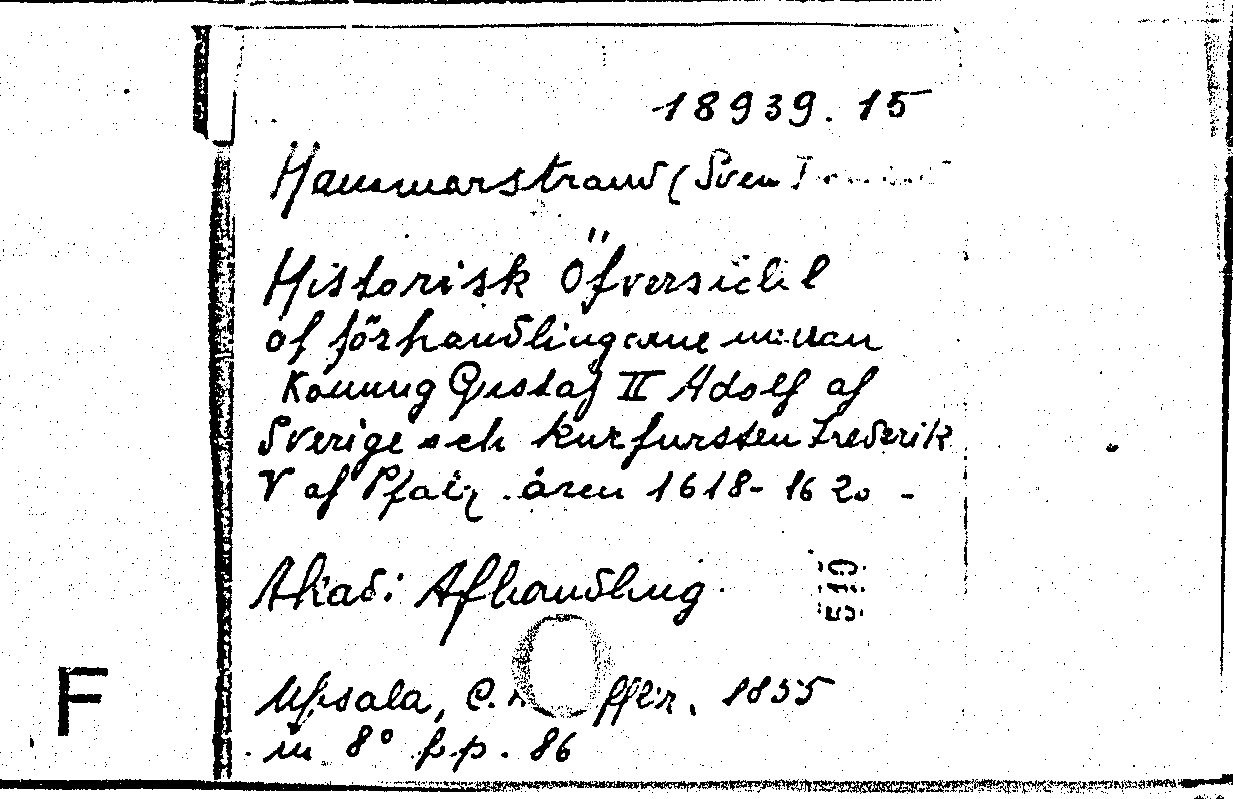 18939. 15
Hammarstrand (Sven
Historisk Öfversickt
af förhandlingarne mellan
Konung Gustaf II Adolf af
Sverige och kurfursten Frederik
V af Pfalz åren 1618-1620 -
Akad: Afhandling
510
Upsala, C.
F
1855
in 8° p.p. 86